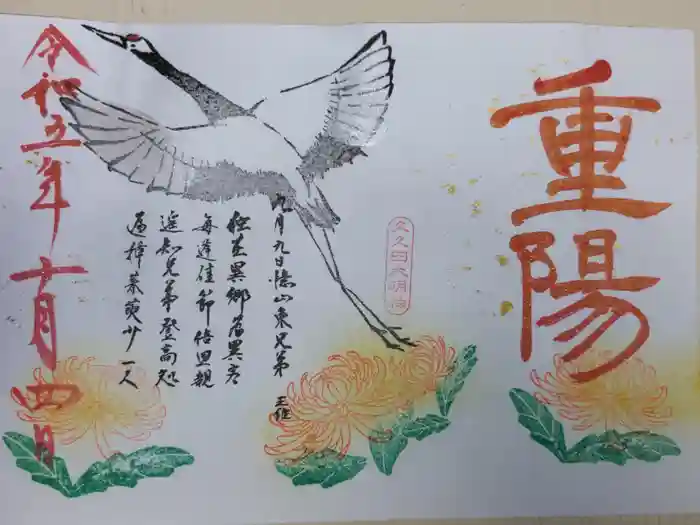 重陽
九月九日憶山東兄弟 王維
独在異郷為異客
毎逢佳節倍思親
遥知兄弟登高処
遍挿茱萸少一人
令和五年十月四日